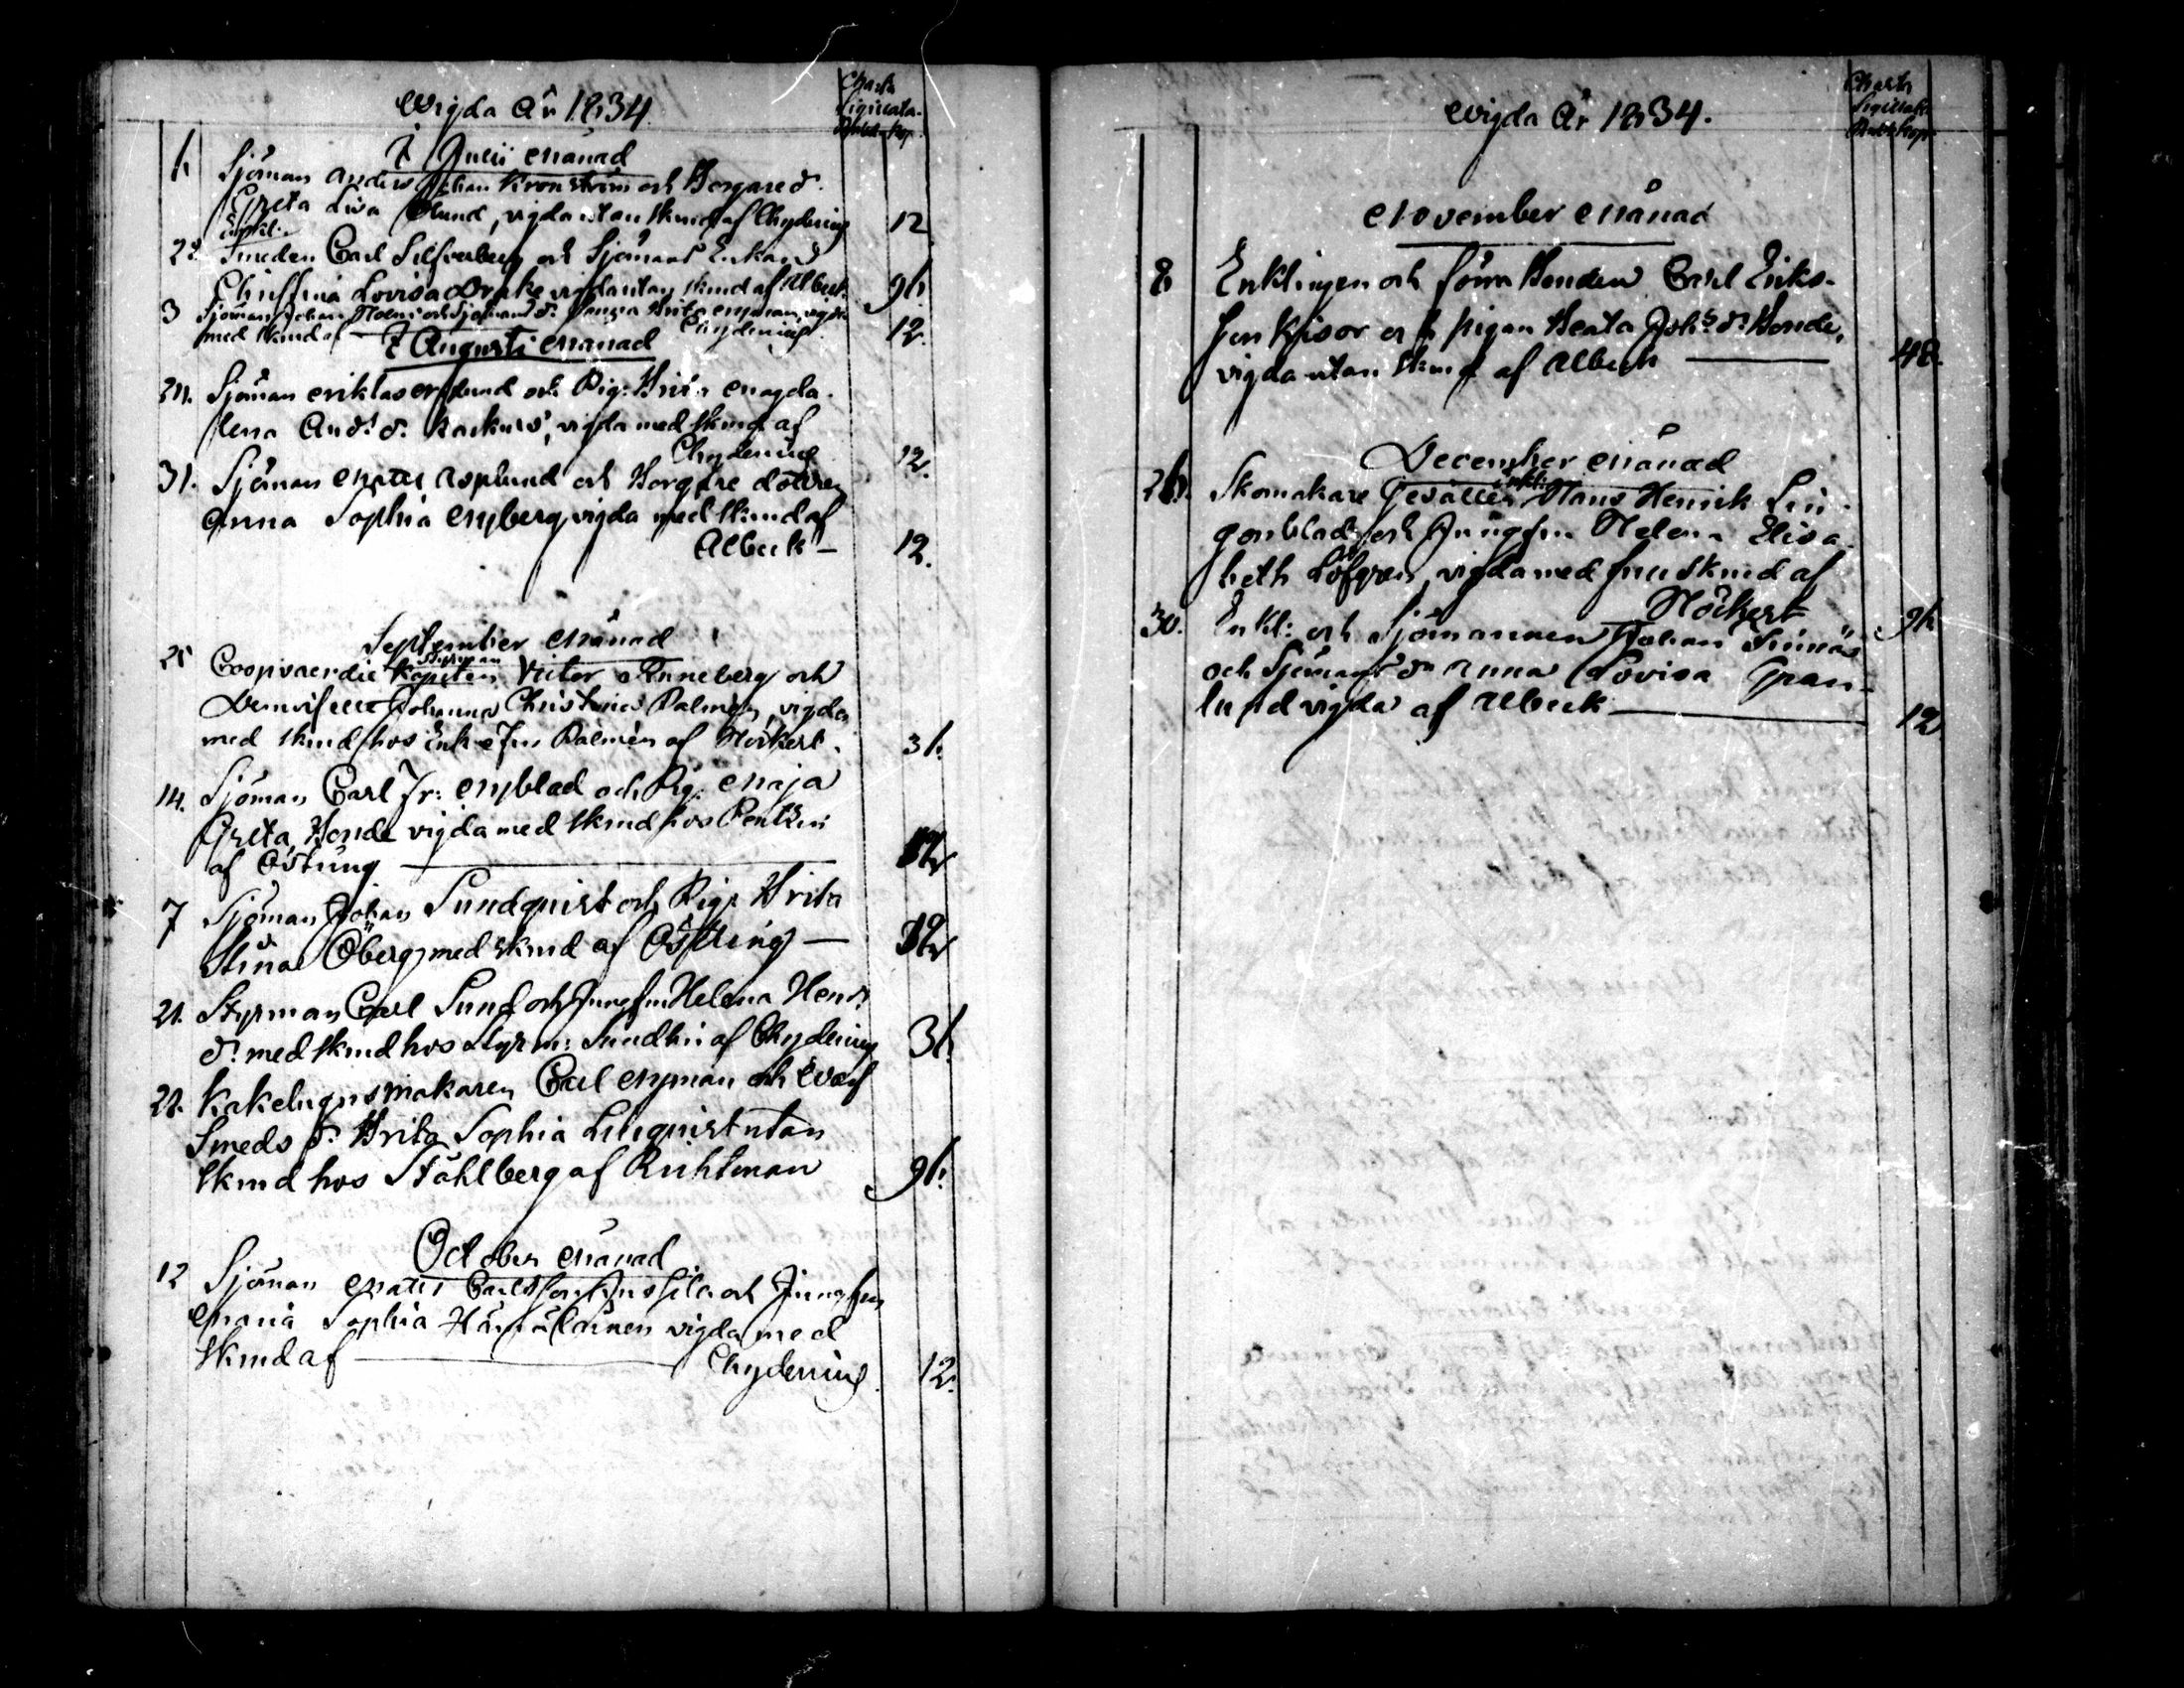 Vigda År 1834.
Charta
Sigillata.
Rub. Kop.
I Julii Månad
6 Sjöman Anders Johan Kronström och Borgare d.
Greta Lisa Ölund, vigda utan skmd af Chydenius 12
Enkl.
22 Smeden Carl Silfverberg och Sjömans Enkan
Christina Lovisa Drake vigda utan skmd af Albeck. 96
3 Sjöman Johan Holm och Sjömans d. Brita Nyman, vigda
med skmd af Chydenius. 12.
I Augusti Månad
24. Sjöman Niklas Asplund och Pig. Brita Magda-
lena And. d. Backus, vigda med skmd af
Chydenius 12.
31. Sjöman Matts Asplund och Borgare dottren
Anna Sophia Nyberg vigda med skmd af
Albeck – 12.
September Månad
25 Coopvaerdie Styrman Kapiten Victor Runeberg och
Demoiselle Johanna Christina Palmén, vigda
med skmd hos Enkefru Palmén af Höckert. 36.
14. Sjöman Carl Fr: Nyblad och Pig. Maja
Greta Bonde vigda med skmd hos Pentzin
af Östring 12
7 Sjöman Johan Sundquist och Pig. Brita
Stina Öberg med skmd af Östring – 12
21. Styrman Carl Sund och Jungfru Helena Henr.
d. med skmd hos Styrm: Sundhin af Chydenius 36.
28. Kakelugnsmakaren Carl Nyman och
Smeds d. Brita Sophia Liliquist utan
skmd hos Ståhlberg af Ruhtman 96.
October Månad
12 Sjöman Matts Carlsson Anssila och Jungfru
Maria Sophia Hämäläinen vigda med
skmd af Chydenius. 12.
Vigda År 1834.
Charta
Sigillata
Rub. Kop.
November Månad
8 Enklingen och förra Bonden Carl Eriks-
son Kisor och pigan Beata Joh:s d:r Bonde,
vigda utan skmd af Albeck 48.
December Månad
26. Skomakare Gesällen Enkl: Hans Henrik Lin-
gonblad och Jungfru Helena Elisa-
beth Löfgren, vigda med skmd af
Höckert 96
30. Enkl: och Sjömannen Johan Sinnäs
och Sjömans dr Anna Lovisa Gran-
lund vigda af Albeck 12